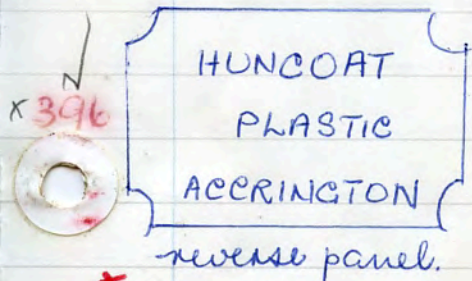 x 396
HUNCOAT
PLASTIC
ACCRINGTON
reverse panel.